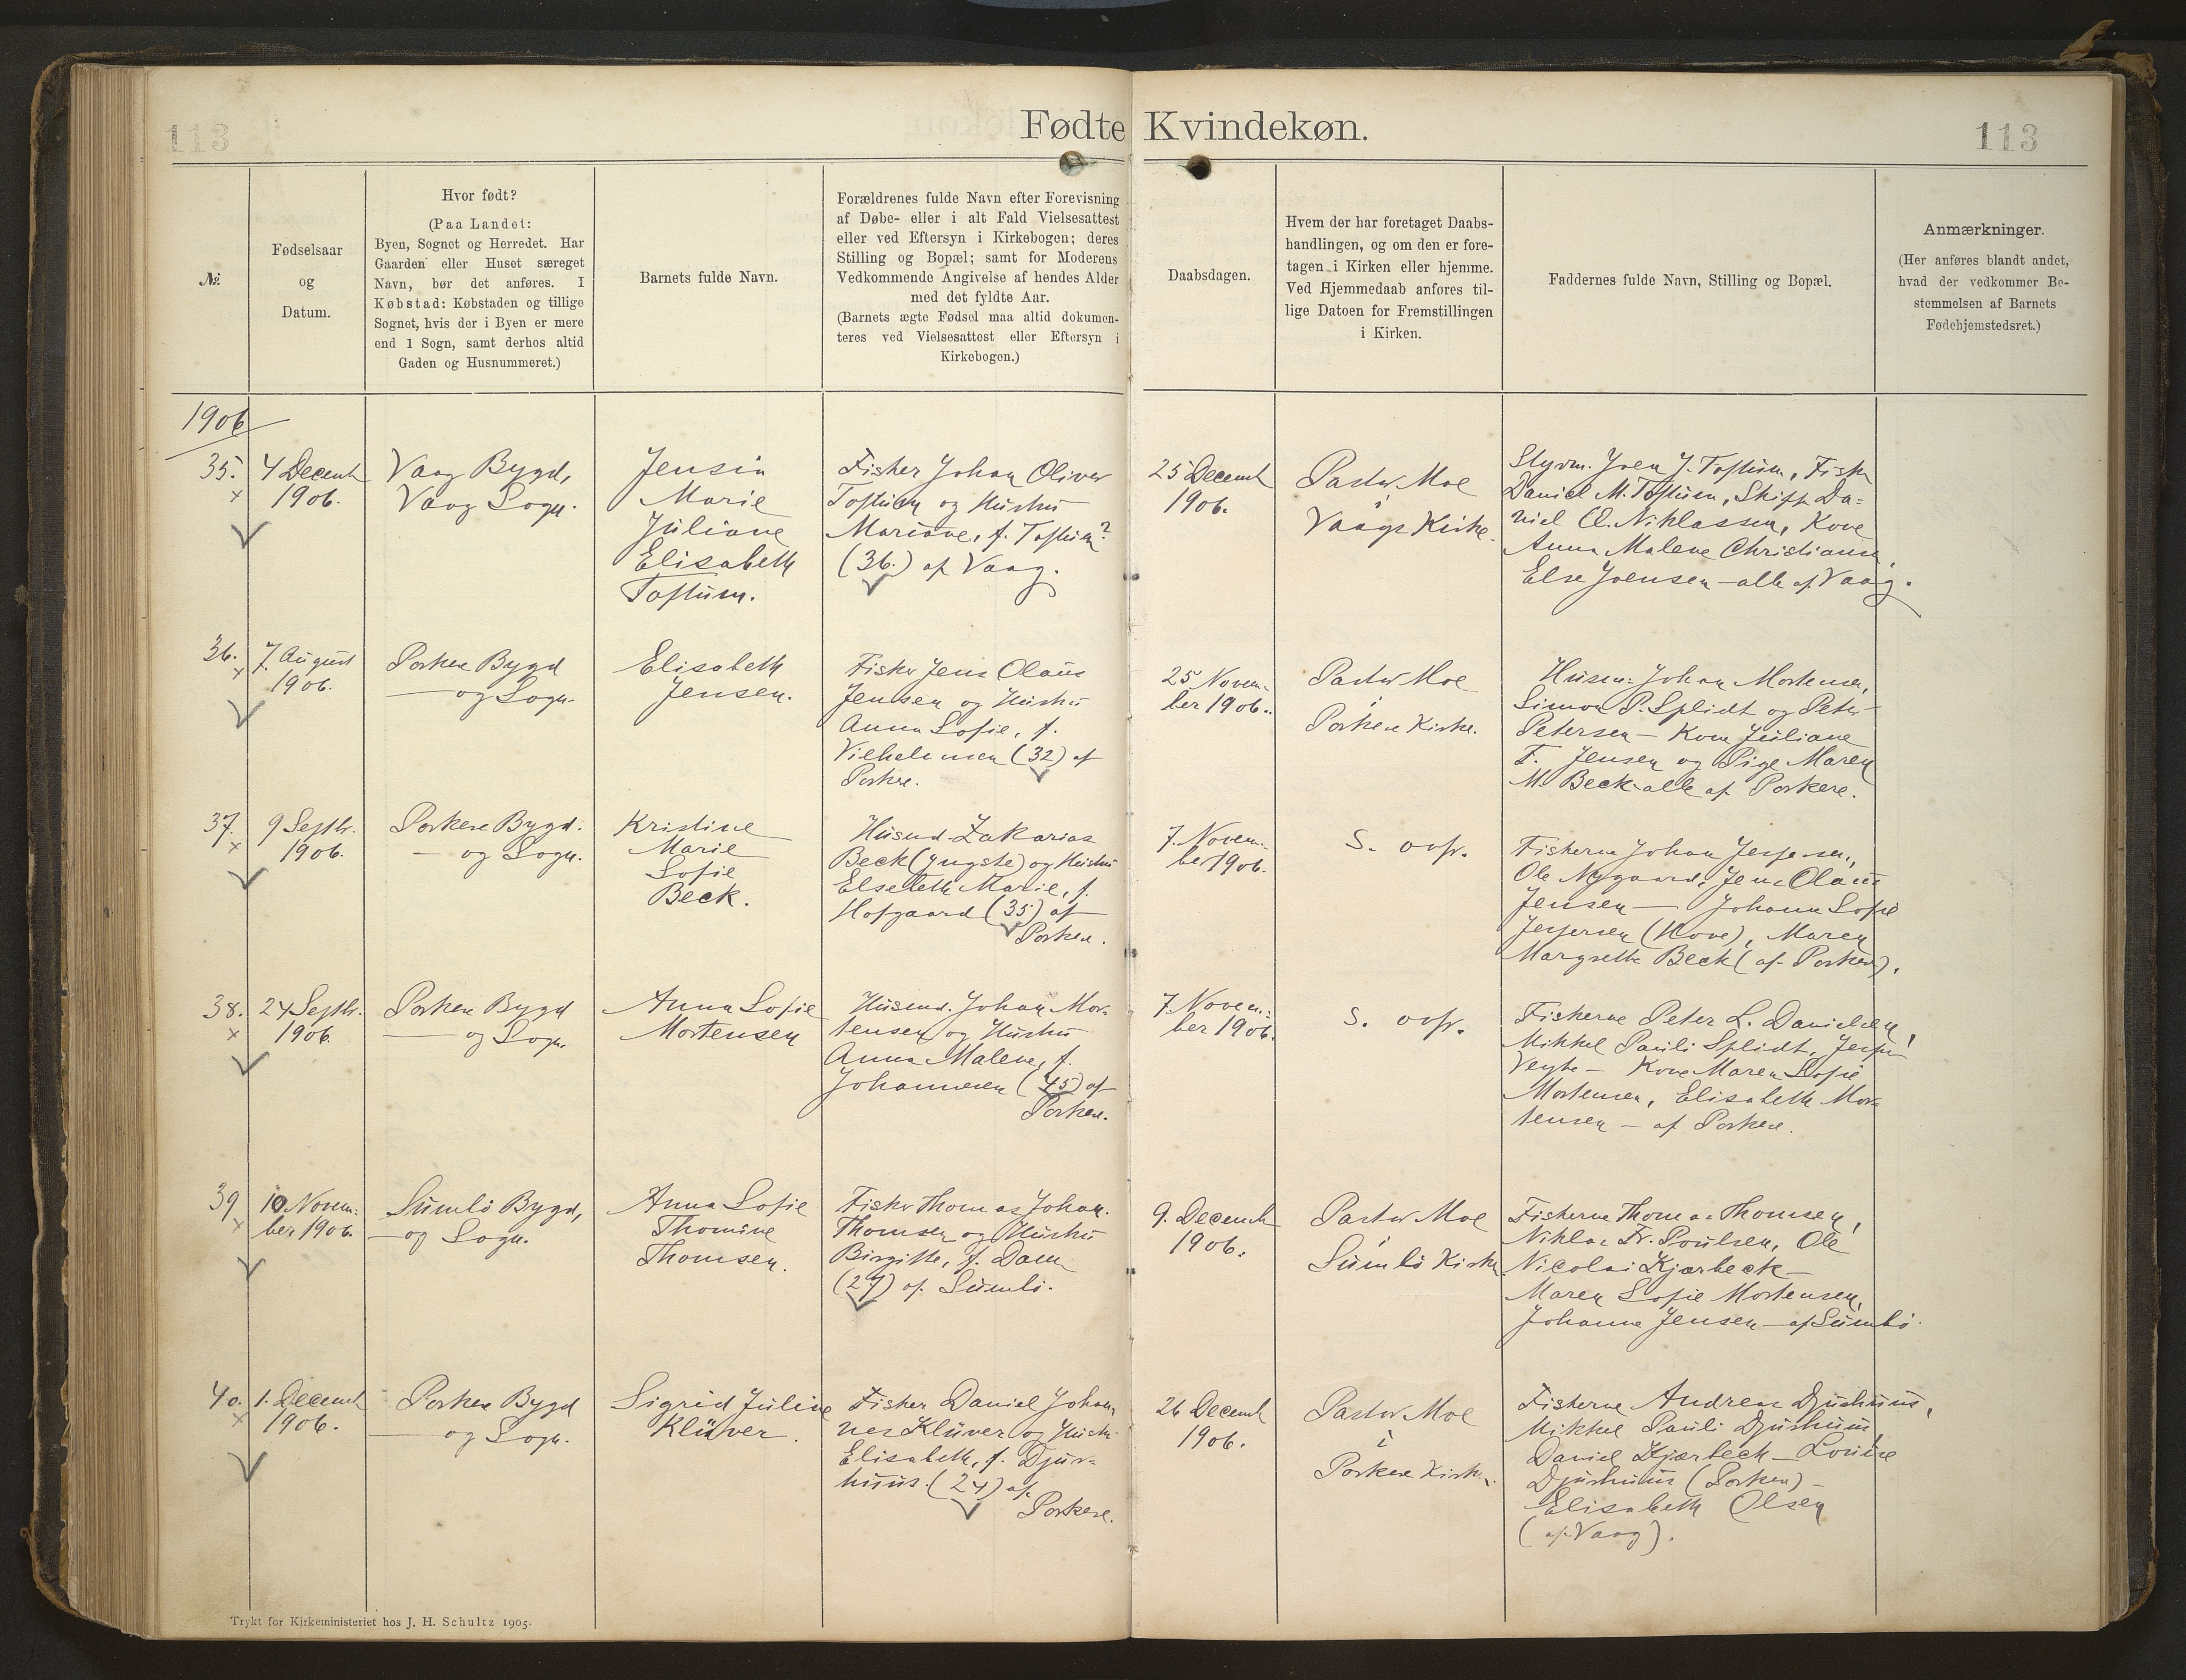 113
Fødte Kvindekøn.
113
№.
Fødselsaar
og
Datum.
Hvor født?
(Paa Landet:
Byen, Sognet og Herredet. Har
Gaarden eller Huset særeget
Navn, bør det anføres. I
Købstad: Købstaden og tillige
Sognet, hvis der i Byen er mere
end 1 Sogn, samt derhos altid
Gaden og Husnummeret.)
Barnets fulde Navn.
Forældrenes fulde Navn efter Forevisning
af Døbe- eller i alt Fald Vielsesattest
eller ved Eftersyn i Kirkebogen; deres
Stilling og Bopæl; samt for Moderens
Vedkommende Angivelse af hendes Alder
med det fyldte Aar.
(Barnets ægte Fødsel maa altid dokumen-
teres ved Vielsesattest eller Eftersyn i
Kirkebogen.)
Daabsdagen.
Hvem der har foretaget Daabs-
handlingen, og om den er fore-
tagen i Kirken eller hjemme.
Ved Hjemmedaab anføres til-
lige Datoen for Fremstillingen
i Kirken.
Faddernes fulde Navn, Stilling og Bopæl.
Anmærkninger.
(Her anføres blandt andet,
hvad der vedkommer Be-
stemmelsen af Barnets
Fødehjemstedsret.)
1906
35.
4 Decemb
1906.
Vaag Bygd,
Vaag Sogn.
Jensin
Marie
Juliane
Elisabeth
Toftum.
Fisker Johan Oliver
Toftum og Hustru
Mariane, f. Toftum?
(36.) af Vaag.
25 Decemb
1906.
Pastor Moe
i
Vaags Kirke.
Styrm. Joen J. Toftum, Fisk
Daniel M. Toftum, Skipp. Da=
niel O. Niklassen, Kone
Anna Malene Christiansen,
Else Joensen – alle af Vaag.
36.
7. August
1906.
Porkere Bygd
— og Sogn.
Elisabeth
Jensen.
Fisker Jens Olaus
Jensen og Hustru
Anna Sofie, f.
Vilhelmsen (32) af
Porkere.
25 Novem=
ber 1906.
Pastor Moe
i
Porkere Kirke.
Husm: Johan Mortensen,
Simon P. Splidt og Peter
Petersen – Kone Juliane
F. Jensen og Pige Maren
M. Beck alle af Porkere.
37.
9 Septbr.
1906.
Porkere Bygd.
— og Sogn.
Kristine
Marie
Sofie
Beck.
Husmd. Zakarias
Beck (yngste) og Hustru
Elsebeth Marie, f.
Hofgaard (35) af
Porkere.
7. Novem=
ber 1906.
S. ovfr.
Fiskerne Johan Jespersen,
Ole Nygaard, Jens Olaus
Jensen — Johanne Sofie
Jespersen (Kone), Maren
Margrethe Beck (af Porkere).
38.
24 Septbr.
1906.
Porkere Bygd
— og Sogn.
Anna Sofie
Mortensen
Husmd. Johan Mor=
tensen og Hustru
Anna Malene, f.
Johannesen (45) af
Porkere.
7 Novem=
ber 1906.
S. ovfr.
Fiskerne Peter L. Danielsen,
Mikkel Pauli Splidt, Jesper
Veyhe – Kone Maren Sofie
Mortensen, Elisabeth Mor=
tensen – af Porkere.
39
10 Novem=
ber 1906.
Sumbö Bygd,
— og Sogn.
Anna Sofie
Thomine
Thomsen.
Fisker Thomas Johan.
Thomsen og Hustru
Birgitte, f. Dam
(27) af Sumbö.
9. Decemb
1906.
Pastor Moe
i
Sumbö Kirke
Fiskerne Thomas Thomsen,
Niklas Fr. Poulsen, Ole
Nicolai Kjærbeck –
Maren Sofie Mortensen,
Johanne Jensen – af Sumbö.
40.
1. Decemb
1906.
Porkere Bygd
— og Sogn.
Sigrid Juline
Klüver.
Fisker Daniel Johan=
nes Klüver og Hustr.
Elisabeth, f. Djur=
huus. (24) af
Porkere.
26 Decemb
1906.
Pastor Moe
i
Porkere Kirke.
Fiskerne Andreas Djurhuus,
Mikkel Pauli Djurhuus,
Daniel Kjærbeck – Louise
Djurhuus (Porkere) –
Elisabeth Olsen
(af Vaag).
Trykt for Kirkeministeriet hos J. H. Schultz 1905.